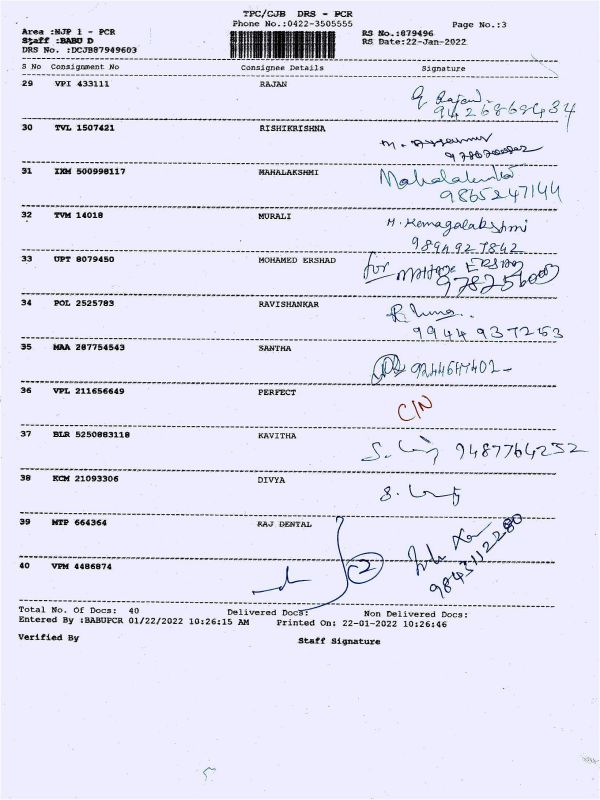 TPC/CJB DRS - PCR
Phone No.:0422-3505555
Page No.:3
Area :NJP 1 - PCR
Staff :BABU D
DRS No. :DCJB87949603
RS No.:879496
RS Date:22-Jan-2022
S No Consignment No Consignee Details Signature
29 VPI 433111 RAJAN
30 TVL 1507421 RISHIKRISHNA
31 IXM 500998117 MAHALAKSHMI
9865247144
32 TVM 14018 MURALI
M. Hemagalakshmi
9894927842
33 UPT 8079450 MOHAMED ERSHAD
for
34 POL 2525783 RAVISHANKAR
35 MAA 287754543 SANTHA
36 VPL 211656649 PERFECT
C/N
37 BLR 5250883118 KAVITHA
9487764252
38 KCM 21093306 DIVYA
39 MTP 664364 RAJ DENTAL
9843112280
2
40 VPM 4486874
Total No. Of Docs: 40 Delivered Docs: Non Delivered Docs:
Entered By :BABUPCR 01/22/2022 10:26:15 AM Printed On: 22-01-2022 10:26:46
Verified By Staff Signature